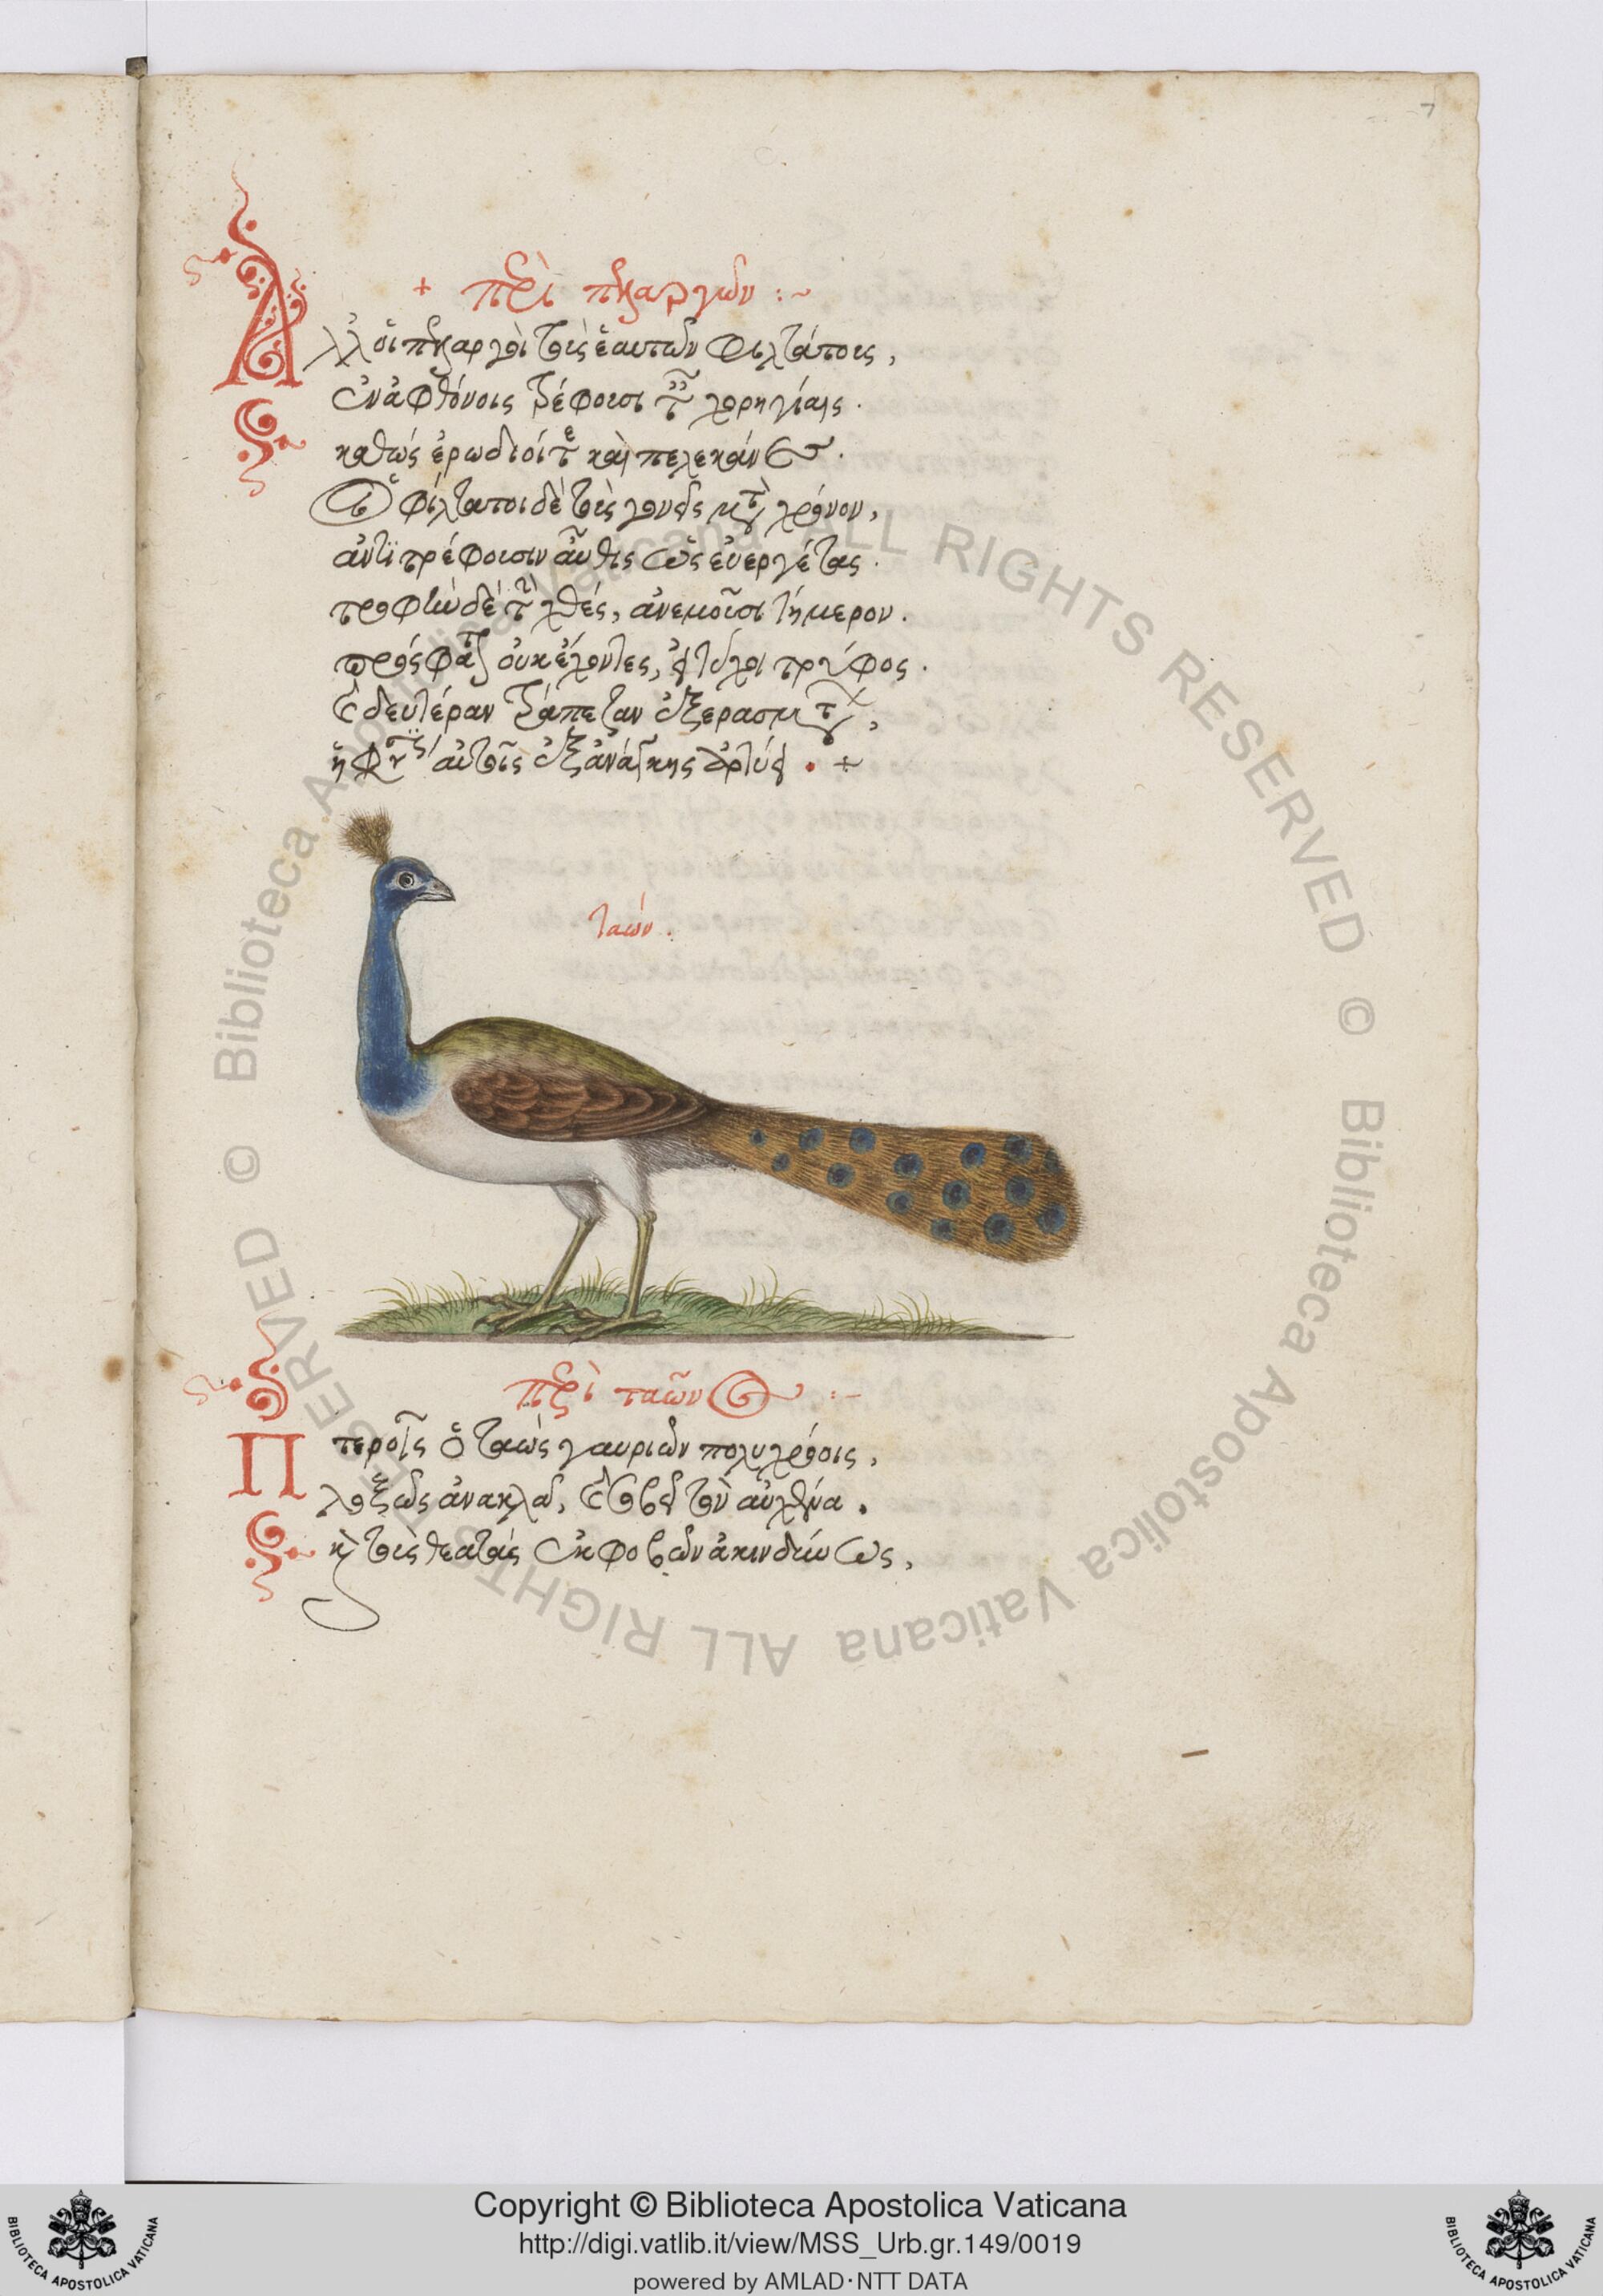 7
+ περὶ πελαργῶν :~
Ἀλλ' οἱ πελαργοὶ τοὺς ἑαυτῶν φιλτάτους,
ἐν ἀφθόνοις τρέφουσι ταῖς χορηγίαις.
καθὼς ἐρωδιοί τε καὶ πελεκάνες.
Οἱ φίλτατοι δὲ τοὺς γονεῖς μετὰ χρόνον,
ἀντιτρέφουσιν αὖθις ὡς εὐεργέτας.
τροφὴν δὲ τὴν χθές, ἀνεμοῦσι τήμερον.
πρόσφατον οὐκ ἔχοντες, εἰ τύχοι τρύφος.
δευτέραν τράπεζαν ἐξερασμάτων,
ἡ φύσις αὐτοῖς ἐξ ἀνάγκης ἀρτύει. +
ταών.
περὶ ταῶνος :-
Πτεροῖς ὁ ταὼς γαυριῶν πολυχρόοις,
λοξῶς ἀνακλᾷ, σοβεῖ τὸν αὐχένα.
καὶ τοὺς θεατὰς ἐκφοβῶν ἀκινδύνως,
© Biblioteca Apostolica Vaticana ALL RIGHTS RESERVED
© Biblioteca Apostolica Vaticana ALL RIGHTS RESERVED
BIBLIOTECA APOSTOLICA VATICANA
Copyright © Biblioteca Apostolica Vaticana
http://digi.vatlib.it/view/MSS_Urb.gr.149/0019
powered by AMLAD·NTT DATA
BIBLIOTECA APOSTOLICA VATICANA